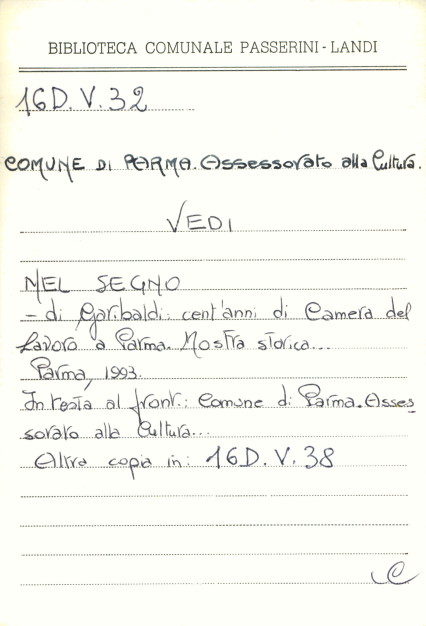 BIBLIOTECA COMUNALE PASSERINI - LANDI
16D. V. 32
COMUNE DI PARMA. Assessorato alla Cultura.
VEDI
NEL SEGNO
- di Garibaldi: cent'anni di Camera del
lavoro a Parma. Mostra storica...
Parma, 1993.
In testa al front.: Comune di Parma. Asses
sorato alla Cultura...
Altra copia in: 16D. V. 38